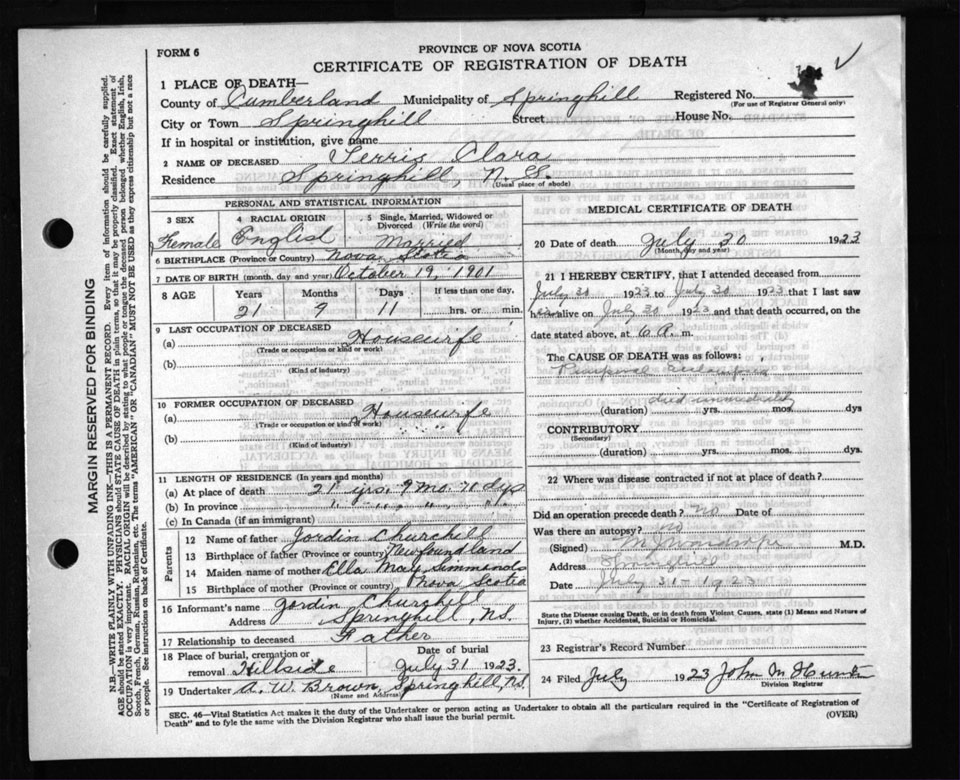 FORM 6
PROVINCE OF NOVA SCOTIA
CERTIFICATE OF REGISTRATION OF DEATH
1 PLACE OF DEATH—
County of Cumberland Municipality of Springhill Registered No.
(For use of Registrar General only)
City or Town Springhill Street House No.
If in hospital or institution, give name
2 NAME OF DECEASED Ferris Clara
Residence Springhill, N. S.
(Usual place of abode)
PERSONAL AND STATISTICAL INFORMATION
3 SEX 4 RACIAL ORIGIN 5 Single, Married, Widowed or Divorced (Write the word)
Female English Married
6 BIRTHPLACE (Province or Country) Nova Scotia
7 DATE OF BIRTH (month, day and year) October 19, 1901
8 AGE Years Months Days If less than one day,
21 9 11 hrs. or min.
9 LAST OCCUPATION OF DECEASED
(a) Housewife
(Trade or occupation or kind or work)
(b)
(Kind of industry)
10 FORMER OCCUPATION OF DECEASED
(a) Housewife
(Trade or occupation or kind of work)
(b)
(Kind of industry)
11 LENGTH OF RESIDENCE (In years and months)
(a) At place of death 21 yrs. 9 mo. 11 dys
(b) In province " " " " " "
(c) In Canada (if an immigrant)
Parents
12 Name of father Jordin Churchill
13 Birthplace of father (Province or country) Newfoundland
14 Maiden name of mother Ella May Simmonds
15 Birthplace of mother (Province or country) Nova Scotia
16 Informant's name Jordin Churchill
Address Springhill, N.S.
17 Relationship to deceased Father
18 Place of burial, cremation or removal Hillside Date of burial July 31 1923.
19 Undertaker A. W. Brown, Springhill, N.S.
(Name and Address)
MEDICAL CERTIFICATE OF DEATH
20 Date of death July 30 1923
(Month, day and year)
21 I HEREBY CERTIFY, that I attended deceased from
July 30 1923 to July 30 1923 that I last saw
her alive on July 30 1923 and that death occurred, on the
date stated above, at 6 A. m.
The CAUSE OF DEATH was as follows:
died immediately
(duration) yrs. mos. dys
CONTRIBUTORY
(Secondary)
(duration) yrs. mos. dys.
22 Where was disease contracted if not at place of death?
Did an operation precede death? No Date of
Was there an autopsy? no
(Signed) M.D.
Address Springhill
Date July 31 - 1923
State the Disease causing Death, or in death from Violent Causes, state (1) Means and Nature of
Injury, (2) whether Accidental, Suicidal or Homicidal.
23 Registrar's Record Number
24 Filed July 1923 John M Hunter
Division Registrar
SEC. 46—Vital Statistics Act makes it the duty of the Undertaker or person acting as Undertaker to obtain all the particulars required in the "Certificate of Registration of
Death" and to fyle the same with the Division Registrar who shall issue the burial permit.
(OVER)
MARGIN RESERVED FOR BINDING
N.B.—WRITE PLAINLY WITH UNFADING INK—THIS IS A PERMANENT RECORD. Every item of information should be carefully supplied.
AGE should be stated EXACTLY. PHYSICIANS should STATE CAUSE OF DEATH in plain terms, so that it may be properly classified. Exact statement of
OCCUPATION is very important. RACIAL ORIGIN will be described by stating to what people or tongue the deceased person belonged whether English, Irish,
Scotch, French, German, Russian, Ruthenian, etc. The terms "AMERICAN" OR "CANADIAN" MUST NOT BE USED as they express citizenship but not a race
or people. See instructions on back of Certificate.